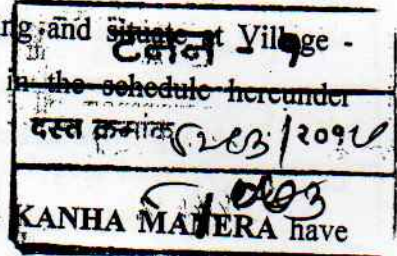 ng and situate at Village -
टनन - १
in the schedule hereunder
दस्त क्रमांक / २०१४
KANHA MADERA have